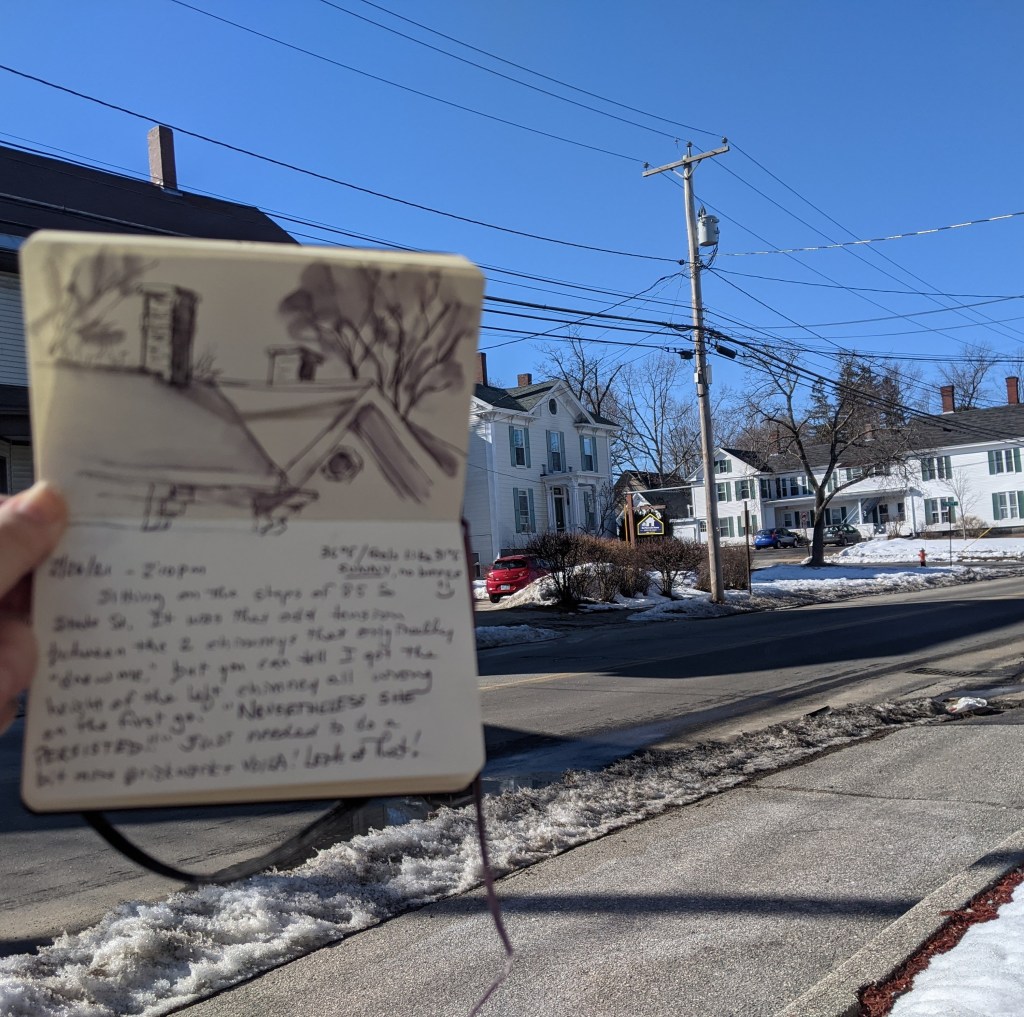 2/26/21 - 2:00pm
36°F/feels like 31°F
SUNNY, no
Sitting on the steps of 85 So
State St, It was that odd tension
between the 2 chimneys that only really
"drew me," but you can tell I got the
height of the left chimney all wrong
on the first go. "NEVERTHELESS SHE
PERSISTED!!" Just needed to do a
bit more brickwork + VOILA! Look at that!